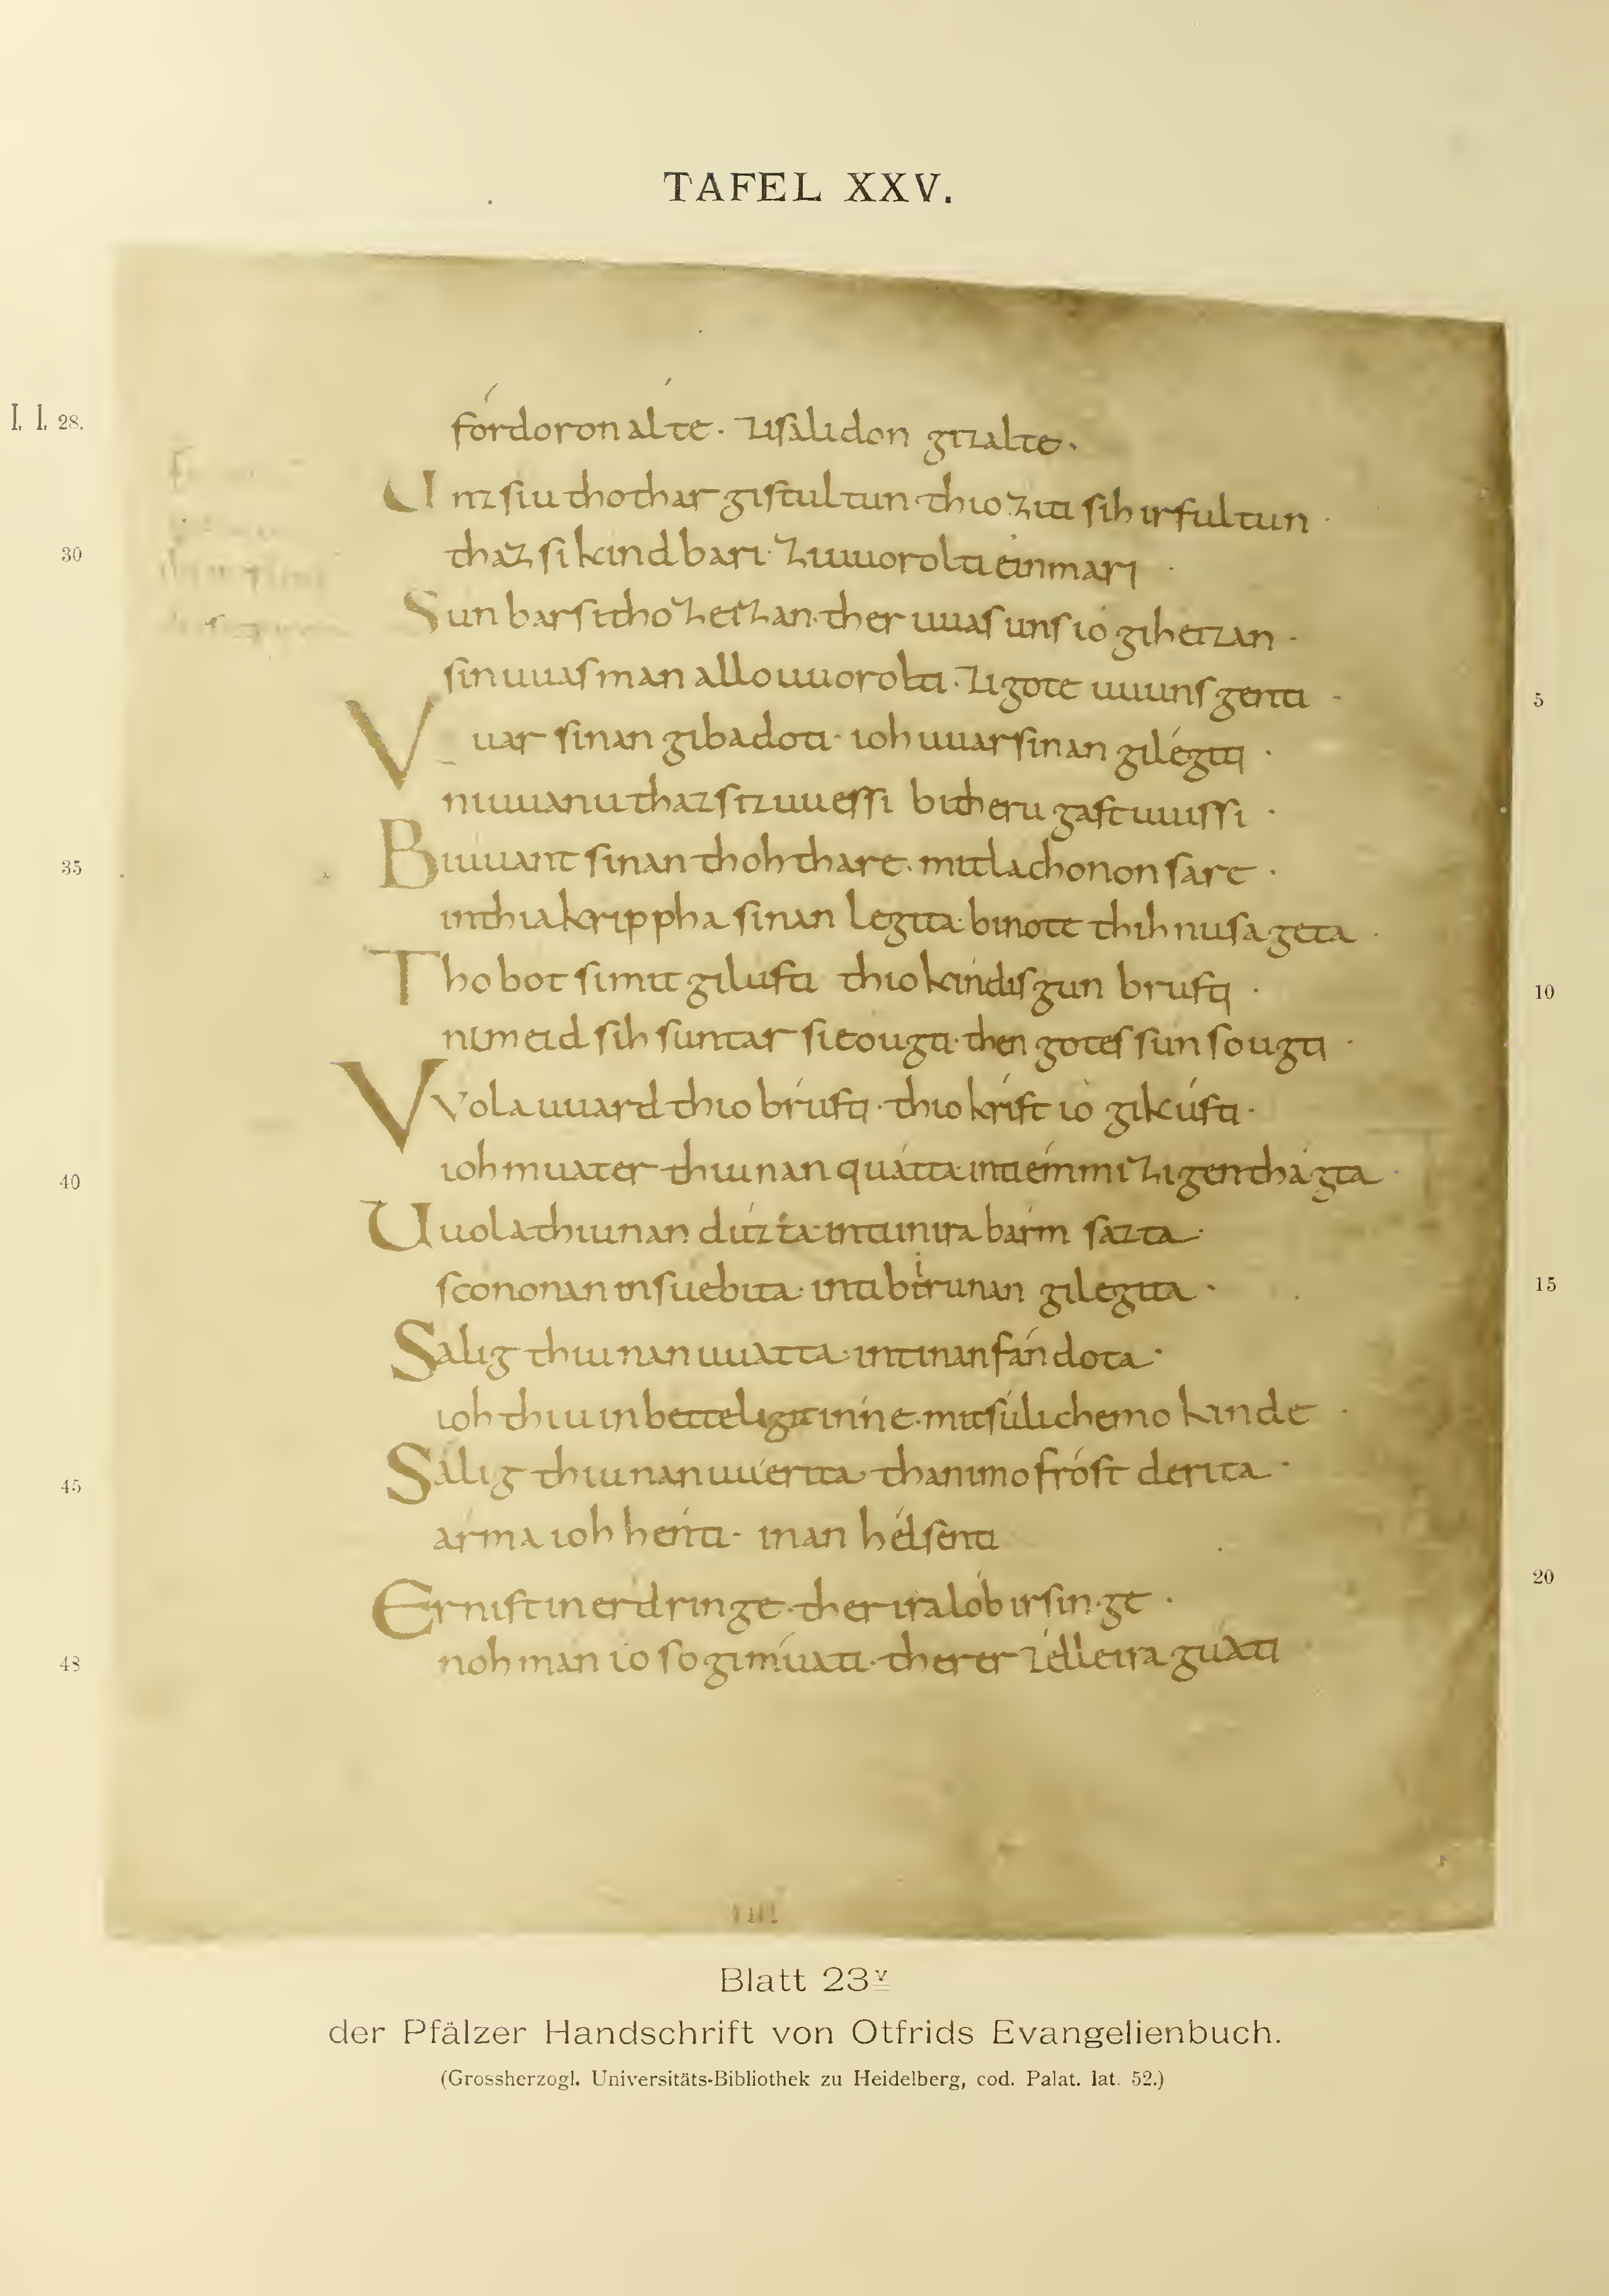 TAFEL XXV.
I, 1, 28.
fórdoron alte · zi sálidon gizalte ·
U nz siu tho thar gistultun · thio ziti sih irfultun ·
30
thaz si kind bari · zi uuorolti éinmari ·
Sun bar si tho zeizan · ther uuas uns io giheizan ·
sin uuas man allo uuorolti · zi gote uuunsgenti ·
5
V uar sinan gibadoti · ioh uuar sinan gilégiti ·
ni uuanu thaz si iz uuessi bi theru gastuuissi ·
35
Biuuant sinan thoh thare · mit lachonon sare ·
in thia krippha sinan legita · bi note thih nu sageta ·
Tho bot si mit gilusti thio kindisgun brusti ·
10
ni meid sih suntar sie ougti · then gotes sun sougti ·
VVola uuard thio brústi · thio krist io gikústi ·
40
ioh muater thiu nan quátta · inti émmizigen thágta ·
Uuola thiu nan dúzta · inti in ira barm sazta ·
scono nan insuebita · inti bi iru nan gilegita ·
15
Salig thiu nan uuatta · inti nan fándota ·
ioh thiu in bette ligit inne · mit súlichemo kinde ·
45
Sálig thiu nan uuerita · than imo fróst derita ·
arma ioh henti · inan hélsenti
20
Er nist in erdringe · ther ira lób irsinge ·
48
noh man io so gimúati · ther er zélle ira gúati
IIII
Blatt 23v
der Pfälzer Handschrift von Otfrids Evangelienbuch.
(Grossherzogl. Universitäts-Bibliothek zu Heidelberg, cod. Palat. lat. 52.)